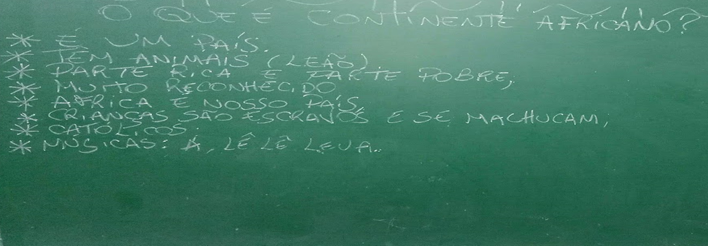 O QUE É CONTINENTE AFRICANO?
* É UM PAÍS.
* TEM ANIMAIS (LEÃO)
* PARTE RICA E PARTE POBRE,
* MUITO RECONHECIDO
* AFRICA É NOSSO PAÍS,
* CRIANÇAS SÃO ESCRAVOS E SE MACHUCAM,
* CATÓLICOS.
* MÚSICAS: A, LÊ LÊ LEUA..